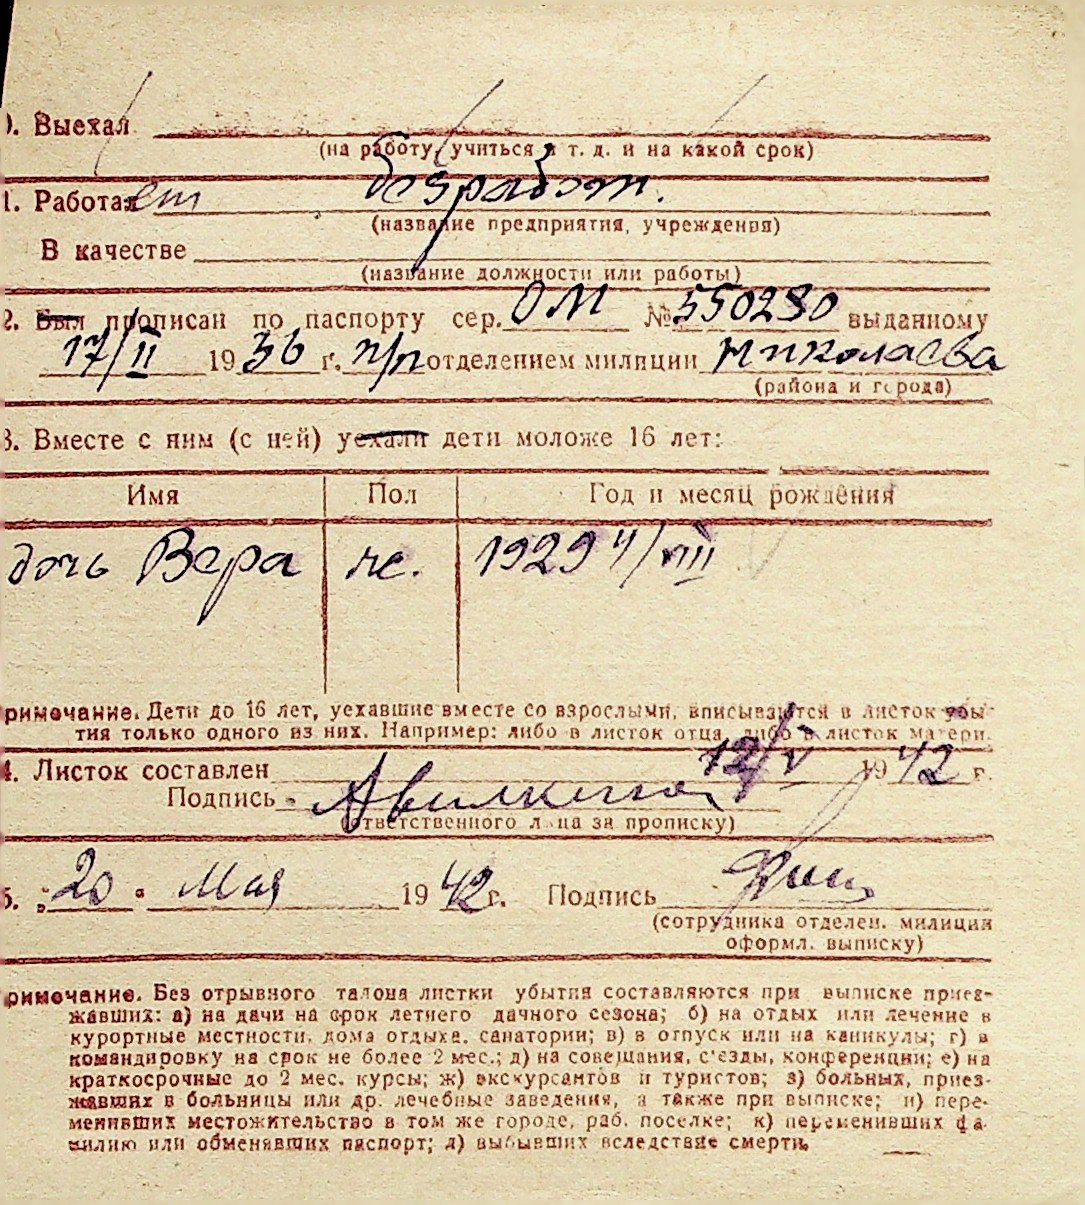 0. Выехал
(на работу, учиться и т. д. и на какой срок)
1. Работает безработ.
(название предприятия, учреждения)
В качестве
(название должности или работы)
2. Был прописан по паспорту сер. ОМ № 550280 выданному
17/II 1936 г. п/п отделением милиции Николаева
(района и города)
3. Вместе с ним (с ней) уехали дети моложе 16 лет:
Имя Пол Год и месяц рождения
дочь Вера ж. 1929 4/VIII
римечание. Дети до 16 лет, уехавшие вместе со взрослыми, вписываются в листок убы-
тия только одного из них. Например: либо в листок отца, либо в листок матери.
4. Листок составлен 12/V 1942 г.
Подпись
(ответственного лица за прописку)
5. „20“ Мая 1942 г. Подпись
(сотрудника отделен. милиции
оформл. выписку)
римечание. Без отрывного талона листки убытия составляются при выписке приез-
жавших: а) на дачи на срок летнего дачного сезона; б) на отдых или лечение в
курортные местности, дома отдыха, санатории; в) в отпуск или на каникулы; г) в
командировку на срок не более 2 мес.; д) на совещания, с'езды, конференции; е) на
краткосрочные до 2 мес. курсы; ж) экскурсантов и туристов; з) больных, приез-
жавших в больницы или др. лечебные заведения, а также при выписке; и) пере-
менивших местожительство в том же городе, раб. поселке; к) переменивших фа-
милию или обменявших паспорт; л) выбывших вследствие смерти.